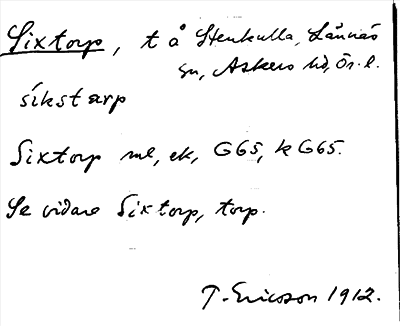 Sixtorp, t å Stenkulla, Lännäs
sn, Askers hd, Ör. l.
síkstarp
Sixtorp ml, ek, G65, k G65.
Se vidare Sixtorp, torp.
T. Ericson 1912.